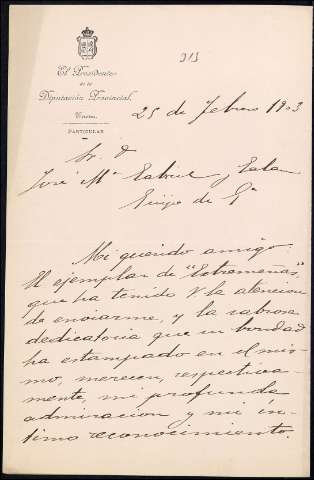 313
El Presidente
de la
Diputación Provincial.
PARTICULAR
25 de Febrero 1903
Sr. D
José Mª Gabriel y Galan
Guijo de Gª
Mi querido amigo:
El ejemplar de "Extremeñas",
que ha tenido V la atencion
de enviarme, y la cabrosa
dedicatoria que su bondad
ha estampado en el mis-
mo, merecen, respectiva-
mente, mi profunda
admiracion y mi ín-
timo reconocimiento.